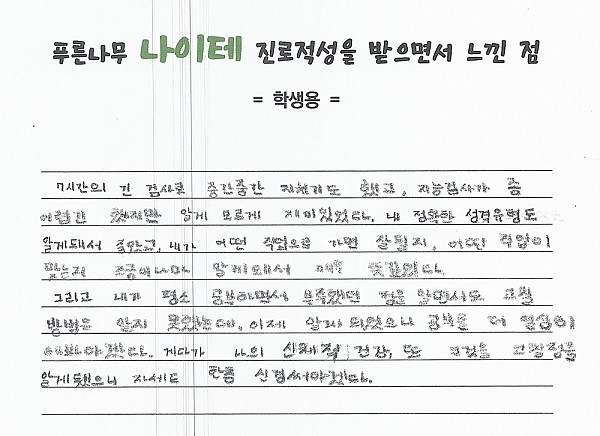 푸른나무 나이테 진로적성을 받으면서 느낀 점
= 학생용 =
7시간의 긴 검사로 중간중간 지치기도 했고, 지능검사가 좀
어렵긴 했지만 알게 모르게 재미있었다. 내 정확한 성격유형도
알게돼서 좋았고, 내가 어떤 직업으로 가면 잘될지, 어떤 직업이
맞는지 조금이나마 알게돼서 매우 뜻깊었다.
그리고 내가 평소 공부하면서 부족했던 점을 알면서도 고칠
방법은 알지 못했는데, 이제 알게 되었으니 공부를 더 열심히
해봐야겠다. 게다가 나의 신체적 건강, 또 그것을 고칠점을
알게됐으니 자세도 한층 신경써야겠다.